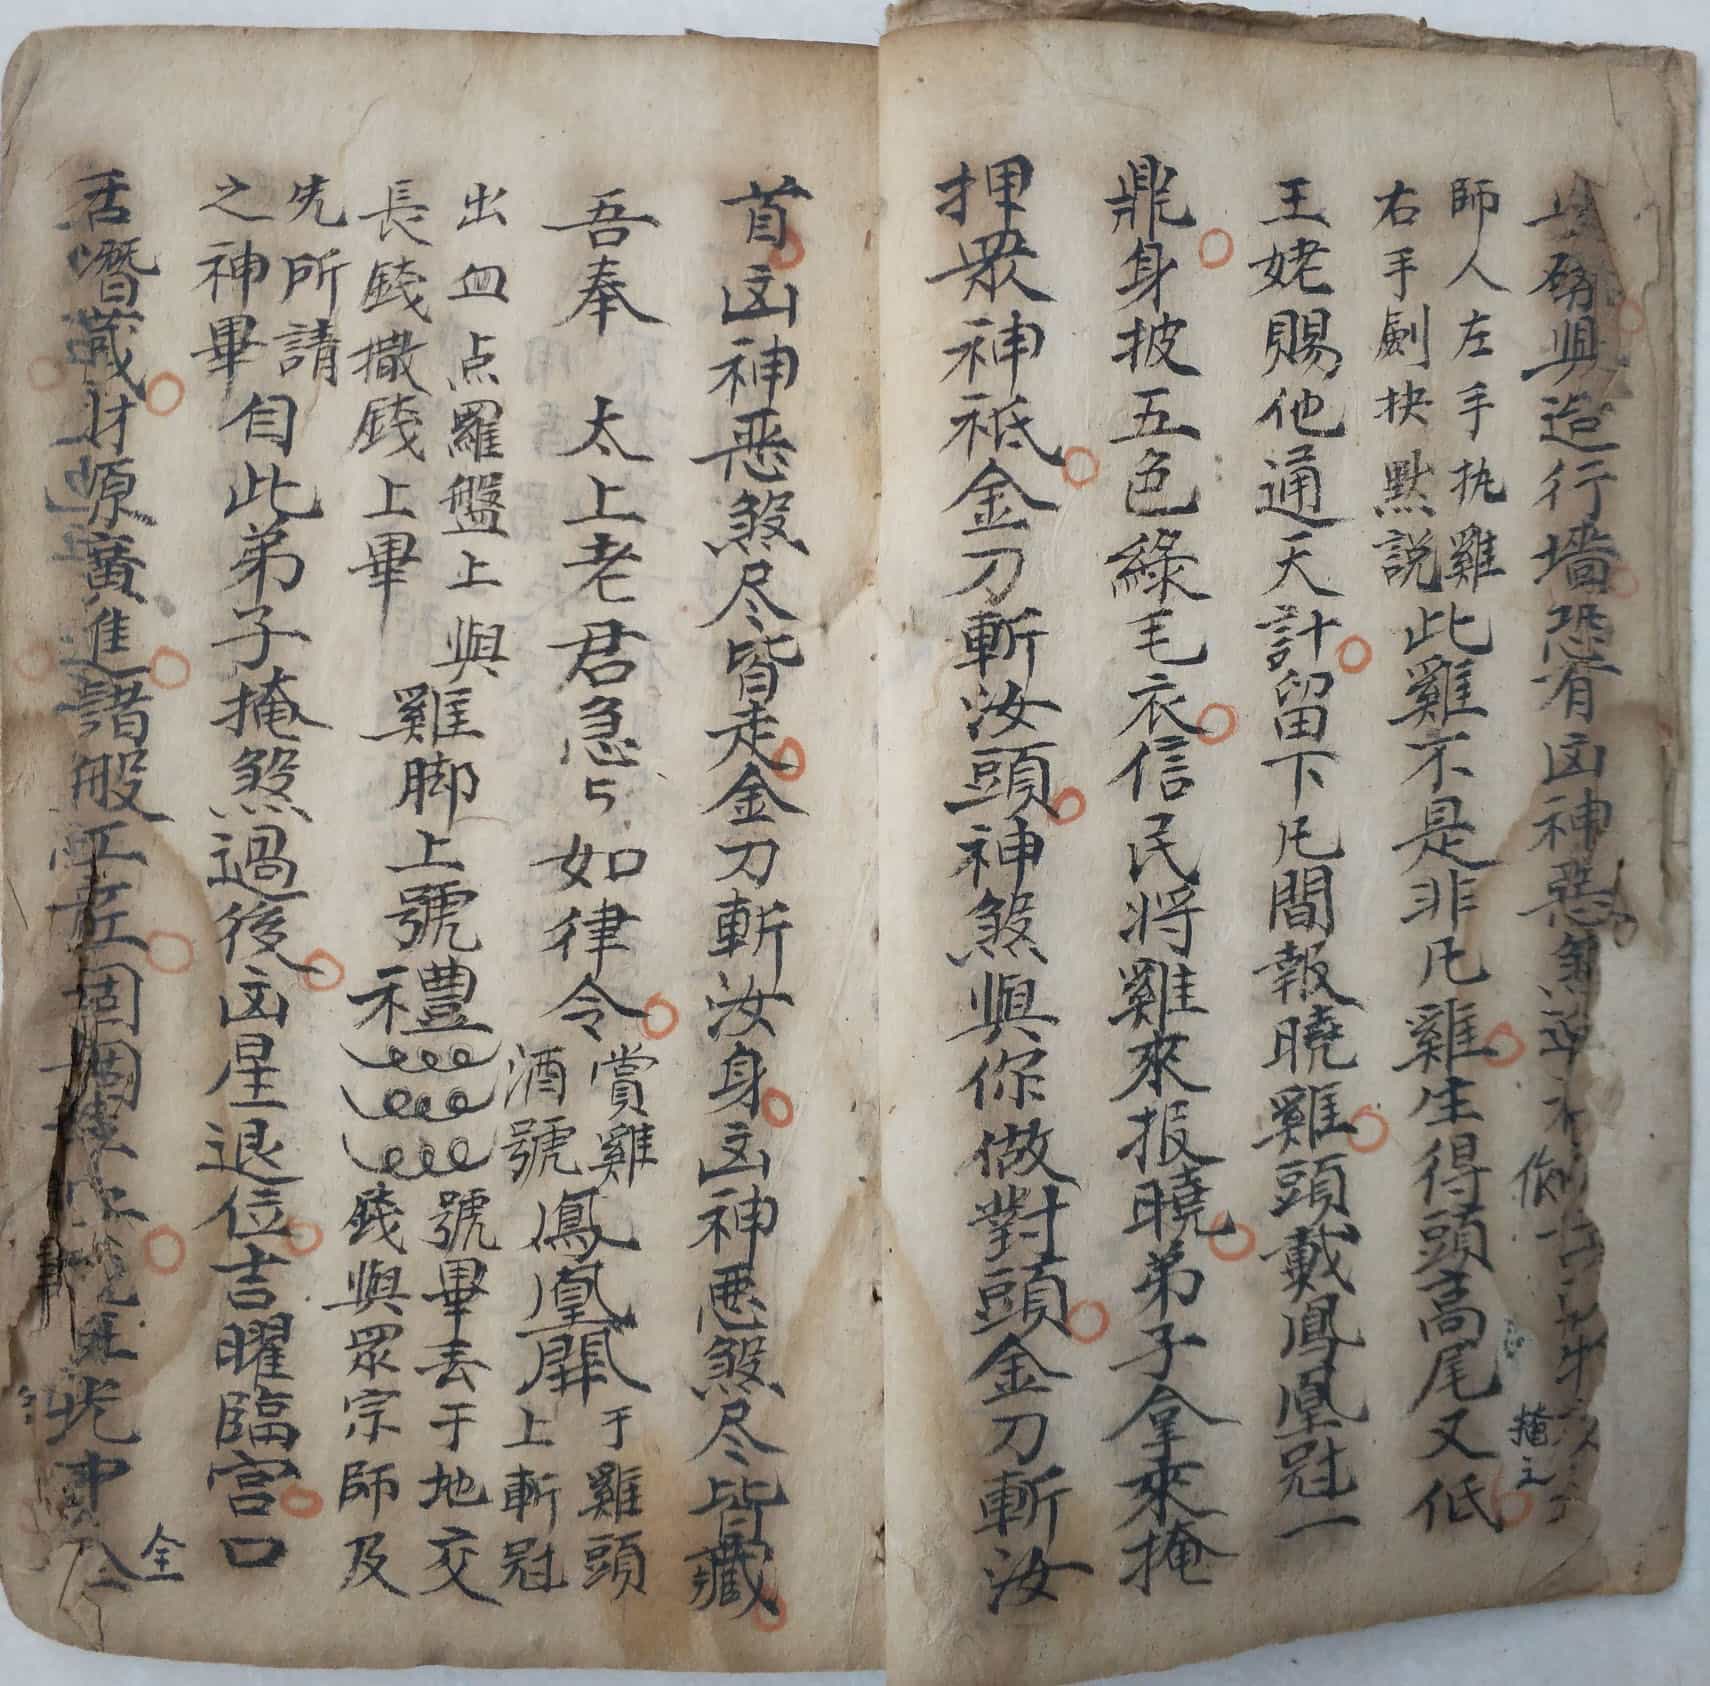 興造行墻恐有凶神惡煞
師人左手执雞
右手劍抉默説
此雞不是非凢雞生得頭高尾又低
王姥賜他通天計留下凢間報曉雞頭戴鳳凰冠一
鼎身披五色綠毛衣信民將雞來报曉弟子拿來掩
押衆神祗金刀斬汝頭神煞與你做對頭金刀斬汝
首凶神惡煞尽皆走金刀斬汝身凶神悪煞尽皆藏
吾奉 太上老君急ㄣ如律令
賞雞
酒號
鳳凰開
于雞頭
上斬冠
出血点羅盤上與
長錢撒錢上畢
雞脚上號禮
號畢丢于地交
錢與眾宗師及
先所請
之神畢
自此弟子掩煞過後凶星退位吉曜臨宫口
舌潛藏財源廣進諸般
全